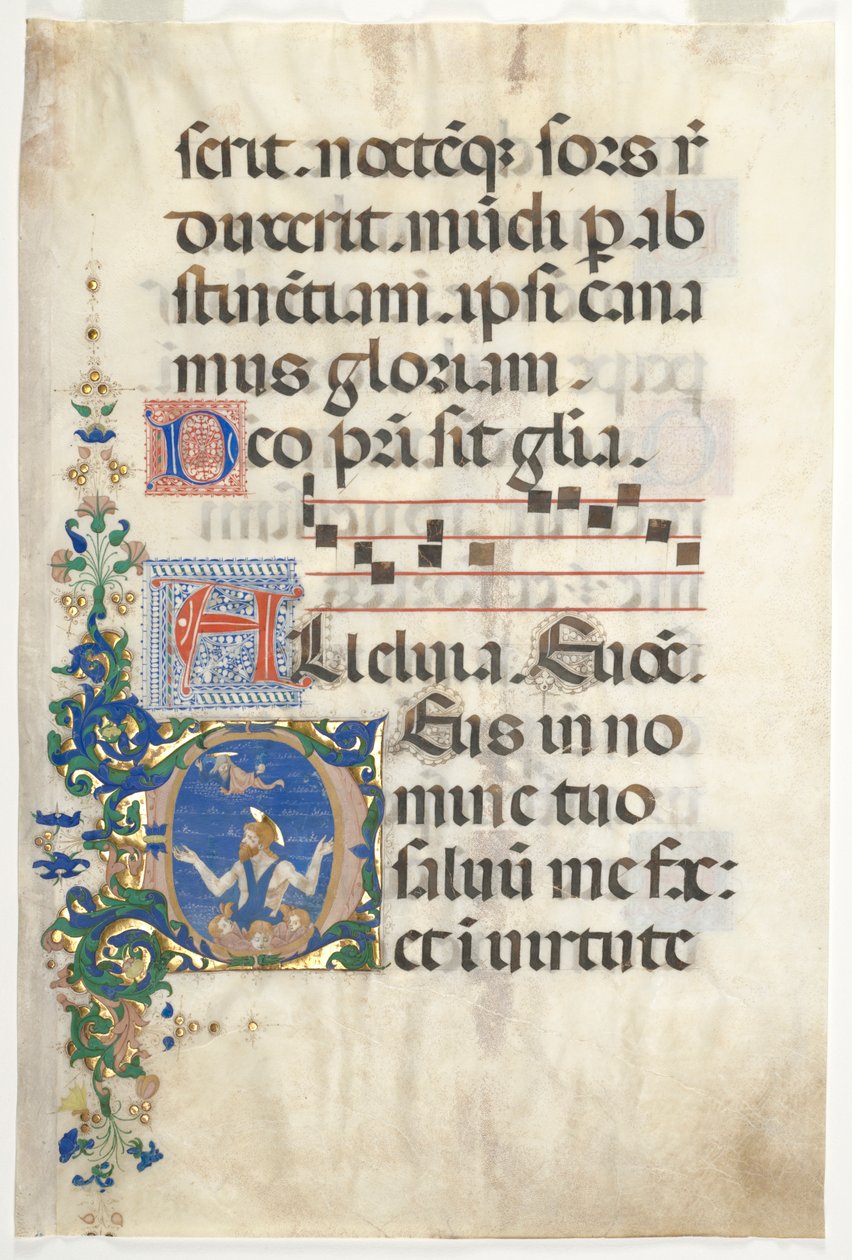 serit. noctēq; sors r̄
duxerit. mūdi ꝑ ab
stinētiam. ipsi cana
mus gloriam.
Deo pr̄i sit gl̄ia.
ALleluia. Euoē.
DEus in no
mine tuo
saluū me fac:
et ī uirtute